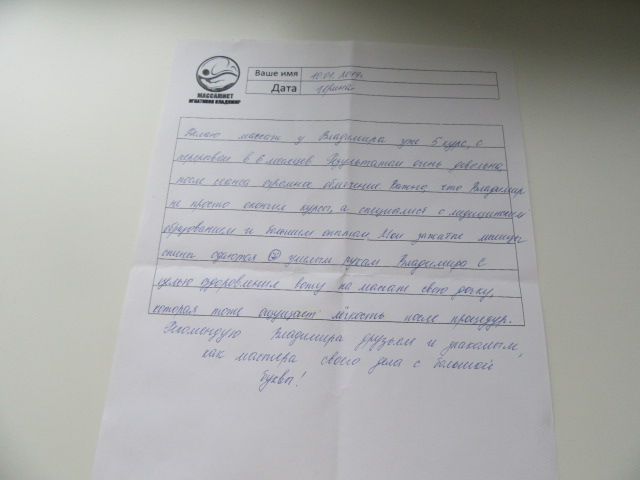 МАССАЖИСТ
ИГНАТИКОВ ВЛАДИМИР
Ваше имя 10.01.2019г
Дата
Делаю массаж у Владимира уже 5 курс, с
перерывом в 6 месяцев. Результатам очень довольна,
после сеанса огромное облегчение. Важно, что Владимир
не просто окончил курсы, а специалист с медицинским
образованием и большим опытом. Мои зажатые мышцы
спины сдаются умелым рукам Владимира. С
целью оздоровления вожу на массаж свою дочку,
которая тоже ощущает лёгкость после процедур.
Рекомендую Владимира друзьям и знакомым,
как мастера своего дела с большой
буквы!